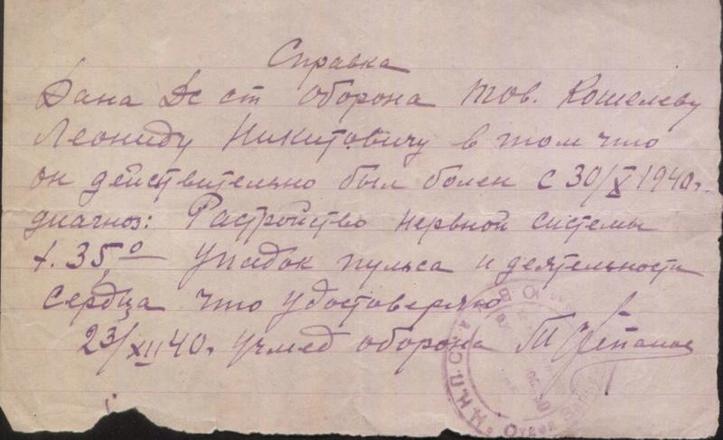 Справка
Дана Дс ст оборона тов. Кошелеву
Леониду Никитовичу в том что
он действительно был болен с 30/X 1940г.
диагноз: Растройство нервной системы
t. 35° упадок пульса и деятельности
Сердца что удостоверяю
23/XII 40г. учмед оборона